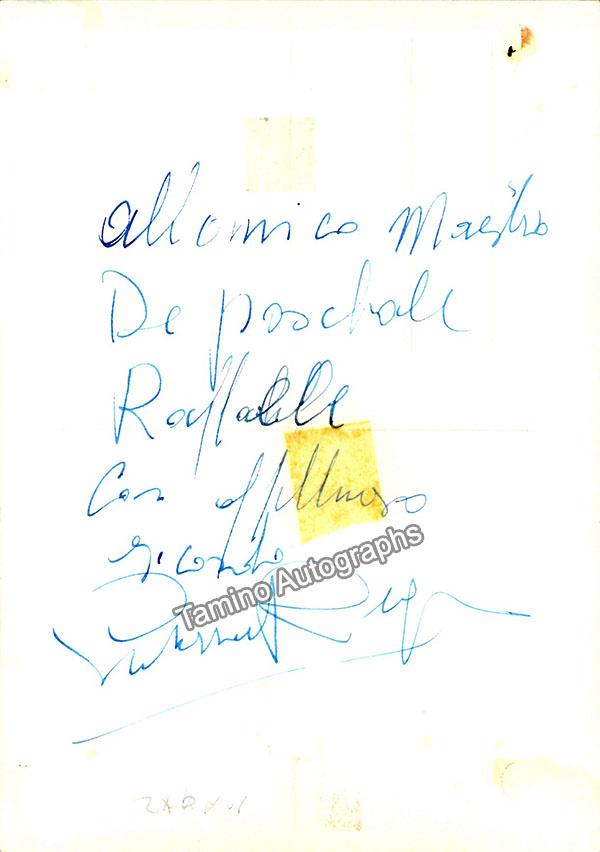 all'amico Maestro
De paschale
Raffaele
Con affettuoso
ricordo
Tamino Autographs